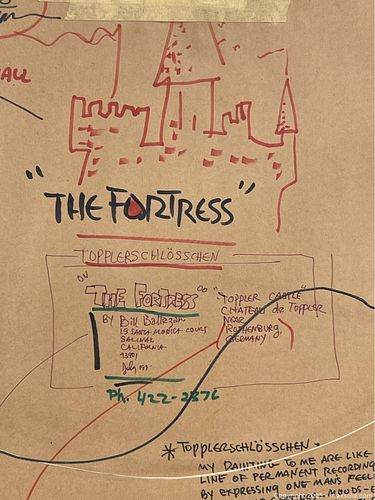 ALL
"THE FORTRESS"
TOPPLERSCHLÖSSCHEN
"THE FORTRESS"
BY Bill
19 SANTA MONICA COURT
SALINAS
CALIFORNIA
93901
July
Ph. 422-2376
"TOPPLER CASTLE"
CHATEAU de TOPPLER
NEAR
ROTHENBURG,
GERMANY
* TOPPLERSCHLÖSSCHEN -
MY PAINTING TO ME ARE LIKE
LINE OF PERMANENT RECORDING
BY EXPRESSING ONE MAN'S FEEL
MOODS-E